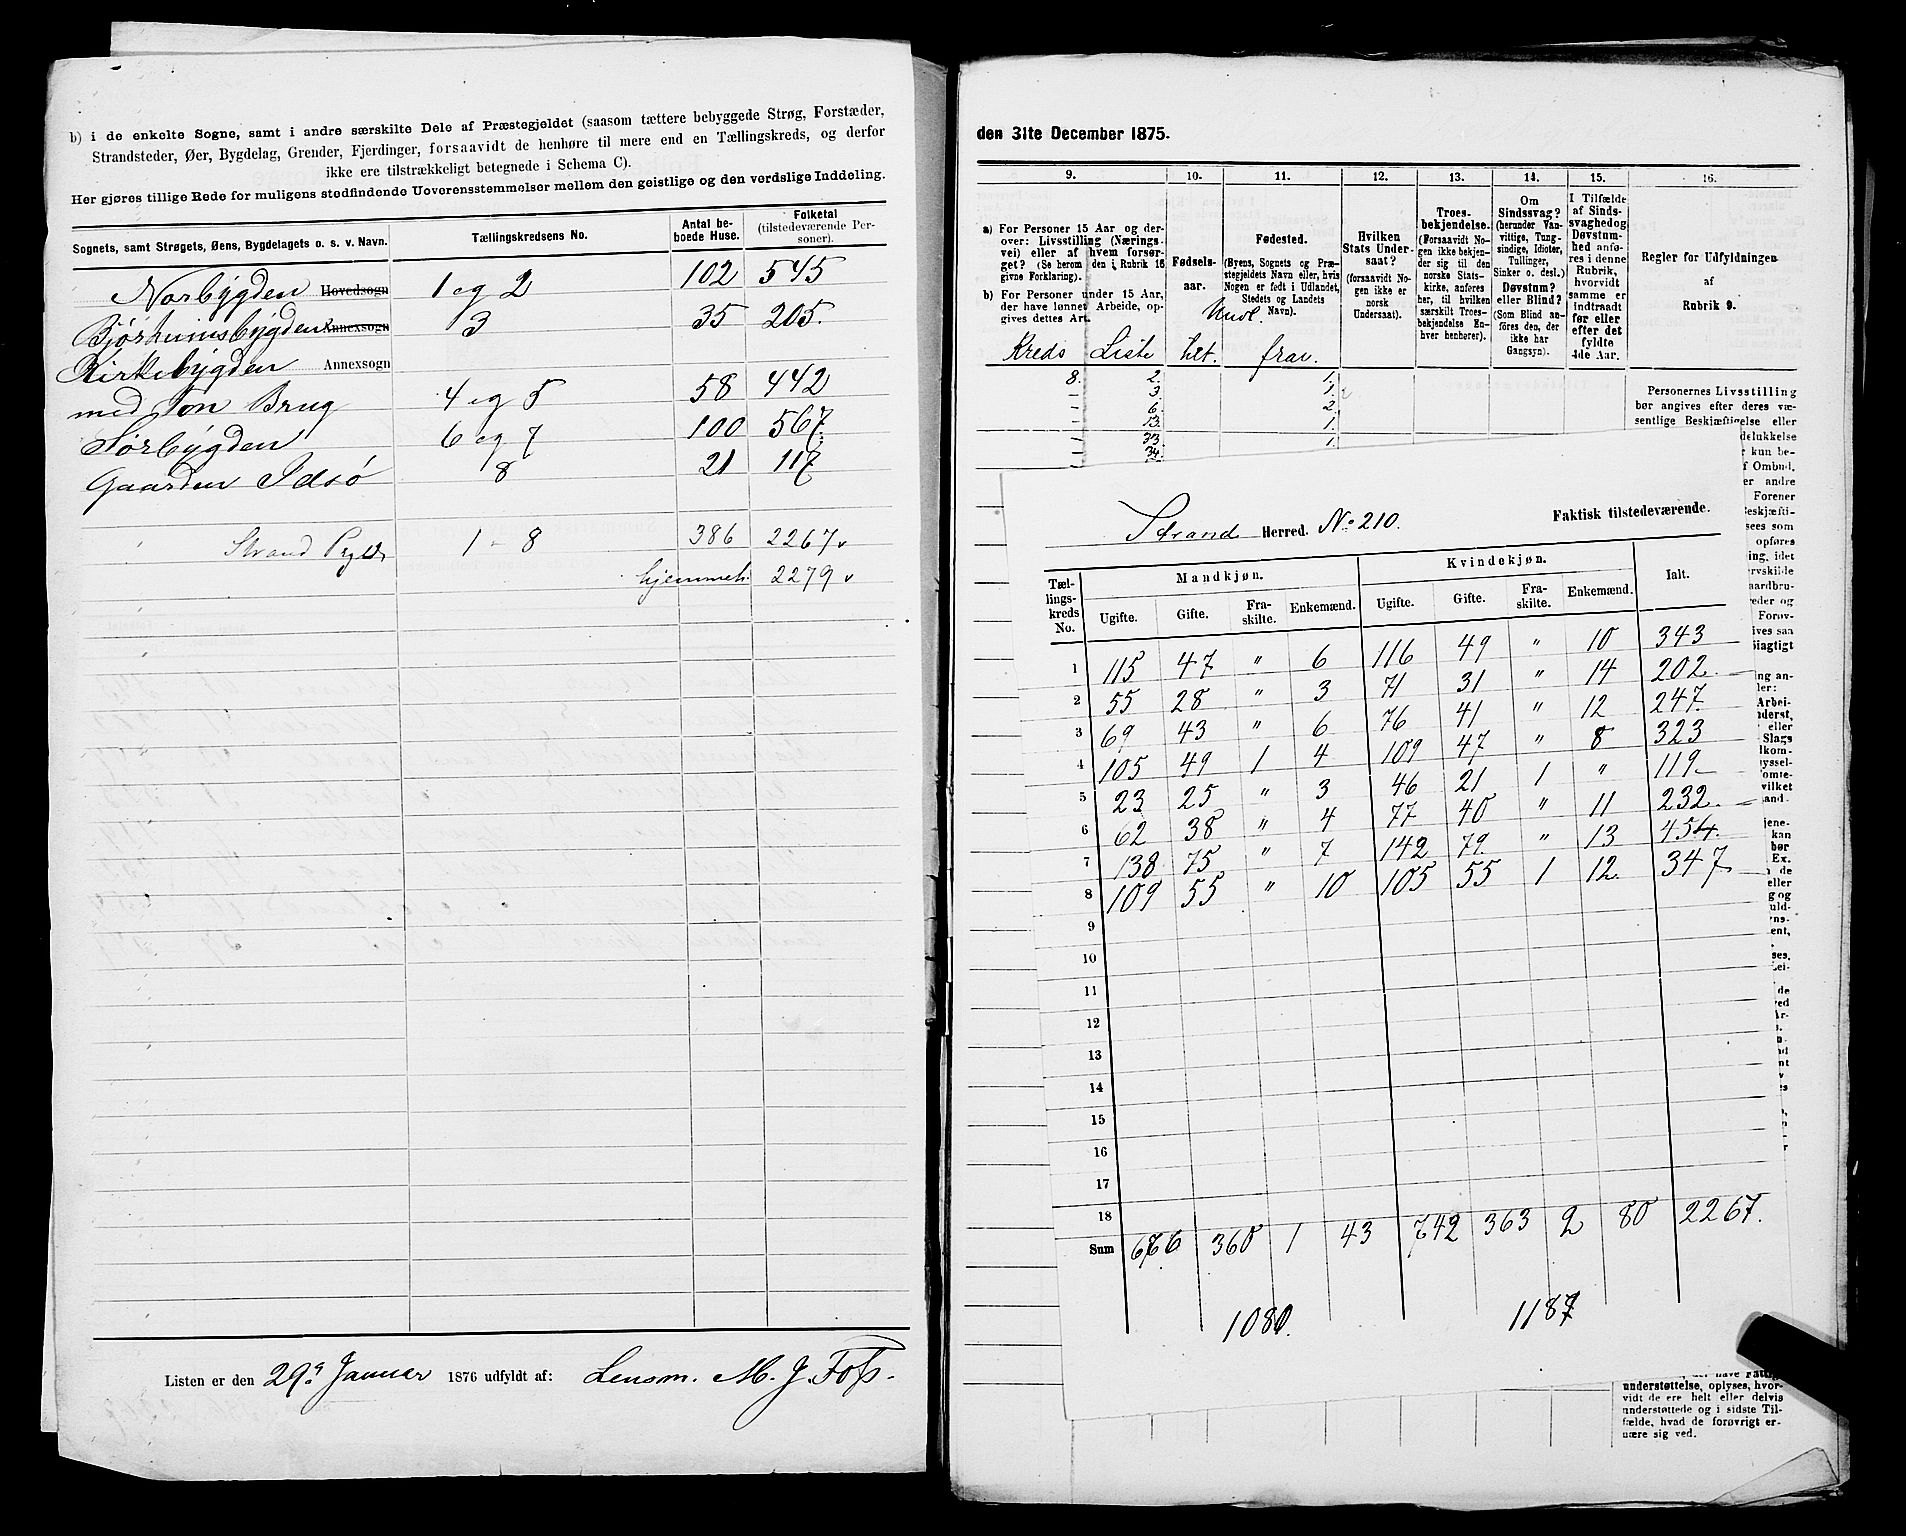 b) i de enkelte Sogne, samt i andre særskilte Dele af Præstegjeldet (saasom tættere bebyggede Strøg, Forstæder,
Strandsteder, Øer, Bygdelag, Grender, Fjerdinger, forsaavidt de henhøre til mere end en Tællingskreds, og derfor
ikke ere tilstrækkeligt betegnede i Schema C).
Her gjøres tillige Rede for muligens stedfindende Uoverensstemmelser mellem den geistlige og den verdslige Inddeling.
Sognets, samt Strøgets, Øens, Bygdelagets o. s. v. Navn. Tællingskredsens No. Antal beboede Huse. Folketal (tilstedeværende Personer).
Norbygden Hovedsogn 1 og 2 102 545
Bjørheimsbygden Annexsogn 3 35 205.
Kirkebygden Annexsogn
med Brug 4 og 5 58 442
Sørbygden 6 og 7 100 567.
Gaarden Idsø 8 21 117
Strand Pgld. 1 - 8 386 2267 v
hjemmeh. 2279 v
Listen er den 29de Januar 1876 udfyldt af: Lensm. M. J. Foss.
den 31te December 1875.
9. 10. 11. 12. 13. 14. 15. 16.
a) For Personer 15 Aar og derover: Livsstilling (Næringsvei) eller af hvem forsørget? (Se herom den i Rubrik 16 givne Forklaring).
b) For Personer under 15 Aar, der have lønnet Arbeide, opgives dettes Art.
Fødselsaar.
Fødested.
(Byens, Sognets og Præstegjeldets Navn eller, hvis Nogen er født i Udlandet, Stedets og Landets Navn).
Hvilken Stats Undersaat?
(forsaavidt Nogen ikke er norsk Undersaat).
Troesbekjendelse.
(Forsaavidt Nogen ikke bekjender sig til den norske Statskirke, anføres her, til hvilken særskilt Troesbekjendelse Enhver henhører).
Om Sindssvag? (herunder Vanvittige, Tungsindige, Idioter, Tullinger, Sinker o. desl.) Døvstum? eller Blind? (Som Blind anføres den, der ikke har Gangsyn).
I Tilfælde af Sindssvaghed og Døvstumhed anføres i denne Rubrik, hvorvidt samme er indtraadt før eller efter det fyldte 4de Aar.
Regler for Udfyldningen
af
Rubrik 9.
Kreds Liste frav.
8. 2. 1.
- 3. 1.
- 6. 2.
- 13. 1.
- 33. 1.
- 34.
Personernes Livsstilling
bør angives efter deres væsentlige Beskjæftigelse eller
Strand Herred. No. 210. Faktisk tilstedeværende.
Tællingskreds No. Mandkjøn. Kvindekjøn. Ialt.
Ugifte. Gifte. Fraskilte. Enkemænd. Ugifte. Gifte. Fraskilte. Enkemænd.
1 115 47 " 6 116 49 " 10 343
2 55 28 " 3 71 31 " 14 202.
3 69 43 " 6 76 41 " 12 247.
4 105 49 1 4 109 47 " 8 323
5 23 25 " 3 46 21 1 " 119
6 62 38 " 4 77 40 " 11 232.
7 138 75 " 7 142 79. " 13 454.
8 109 55 " 10 105 55 1 12. 347
9
10
11
12
13
14
15
16
17
18
Sum 676 360 1 43 742 363 2 80 2267.
1080. 1187
understøttelse, oplyses, hvorvidt de ere helt eller delvis
understøttede og i sidste Tilfælde, hvad de forøvrigt ernære sig ved.